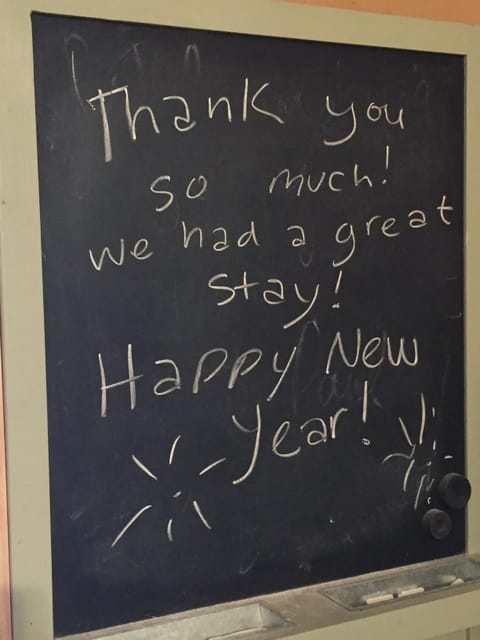 Thank you
so much!
we had a great
stay!
Happy New
Year!